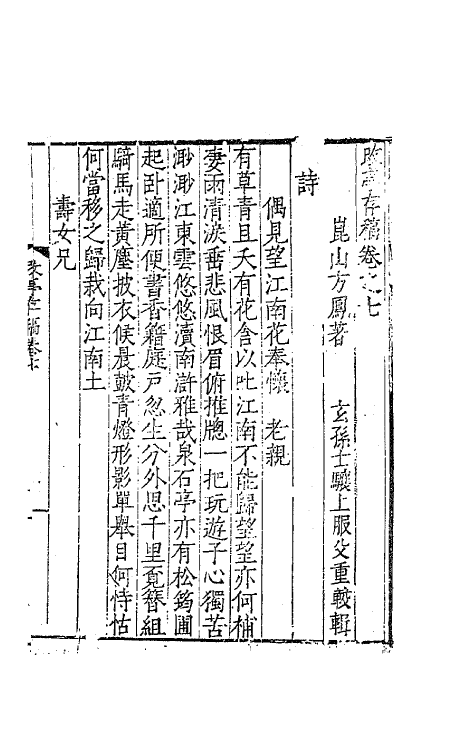 改亭存稿卷之七
崑山方鳳著　玄孫士驤上服父重較輯
詩
偶見望江南花奉懷　老親
有草青且夭有花含以吐江南不能歸望望亦何補
妻雨清淚垂悲風恨眉俯推牕一把玩遊子心獨苦
渺渺江東雲悠悠瀆南滸雅哉泉石亭亦有松筠圃
起卧適所便書香籍庭戸忽生分外思千里覔簪組
騎馬走黃塵披衣候晨鼓青燈形影單舉目何恃怙
何當移之歸栽向江南土
壽女兄
改亭存稿卷七